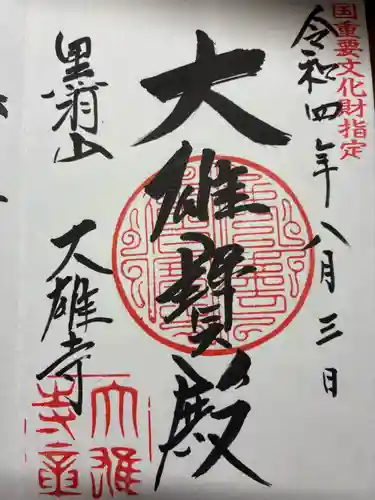 国重要文化財指定
令和四年八月三日
大雄寶殿
黒羽山
大雄寺
大雄
寺章